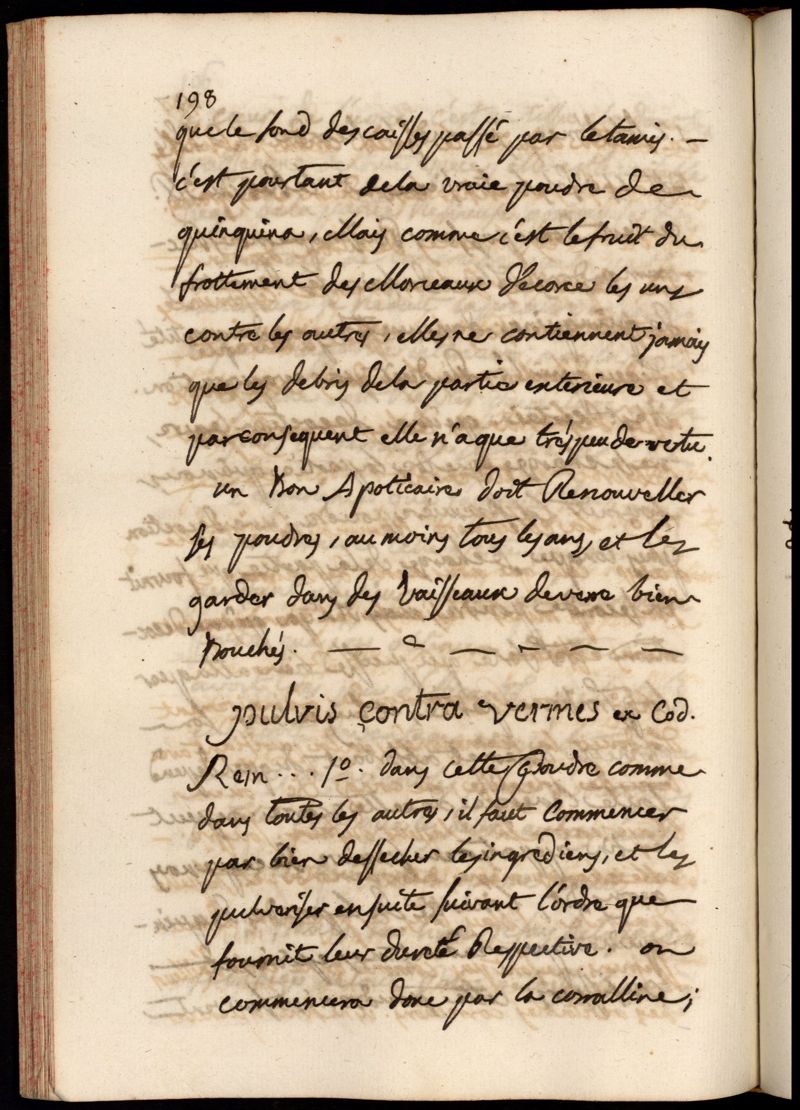 198
que le fond des caisses passé par le tamis. —
c'est pourtant de la vraie poudre de
quinquina, Mais comme c'est le fruit du
frottement des Morceaux d'écorce les uns
contre les autres, elles ne contiennent jamais
que les debris de la partie exterieure et
par consequent elle n'a que très peu de vertu.
un Bon Apoticaire doit Renouveller
ses poudres, au moins tous les ans, et les
garder dans des Vaisseaux de verre bien
Bouchés. — — — — — —
pulvis contra vermes ex Cod.
Rem... 1o. dans cette Poudre comme
dans toutes les autres, il faut Commencer
par bien dessecher les ingrediens, et les
pulveriser ensuite suivant l'ordre que
fournit leur dureté Respective. on
commencera donc par la coralline;